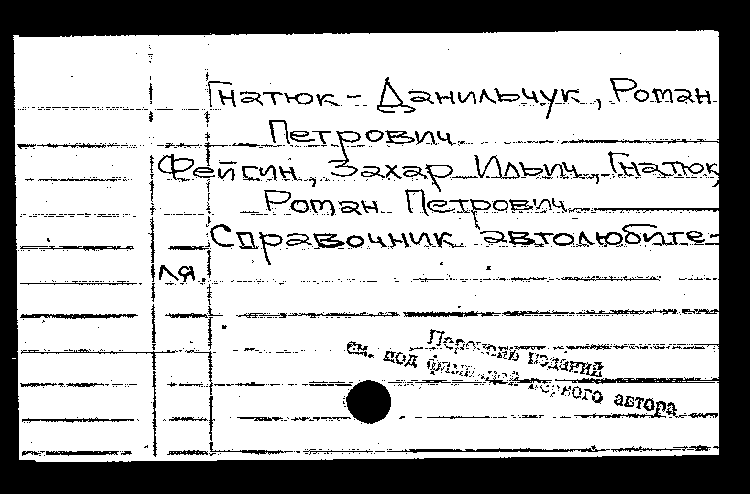 Гнатюк - Данильчук, Роман
Петрович
Фейгин, Захар Ильич, Гнатюк,
Роман Петрович
Справочник автолюбите-
ля.
Перечень изданий
см. под фамилией первого автора